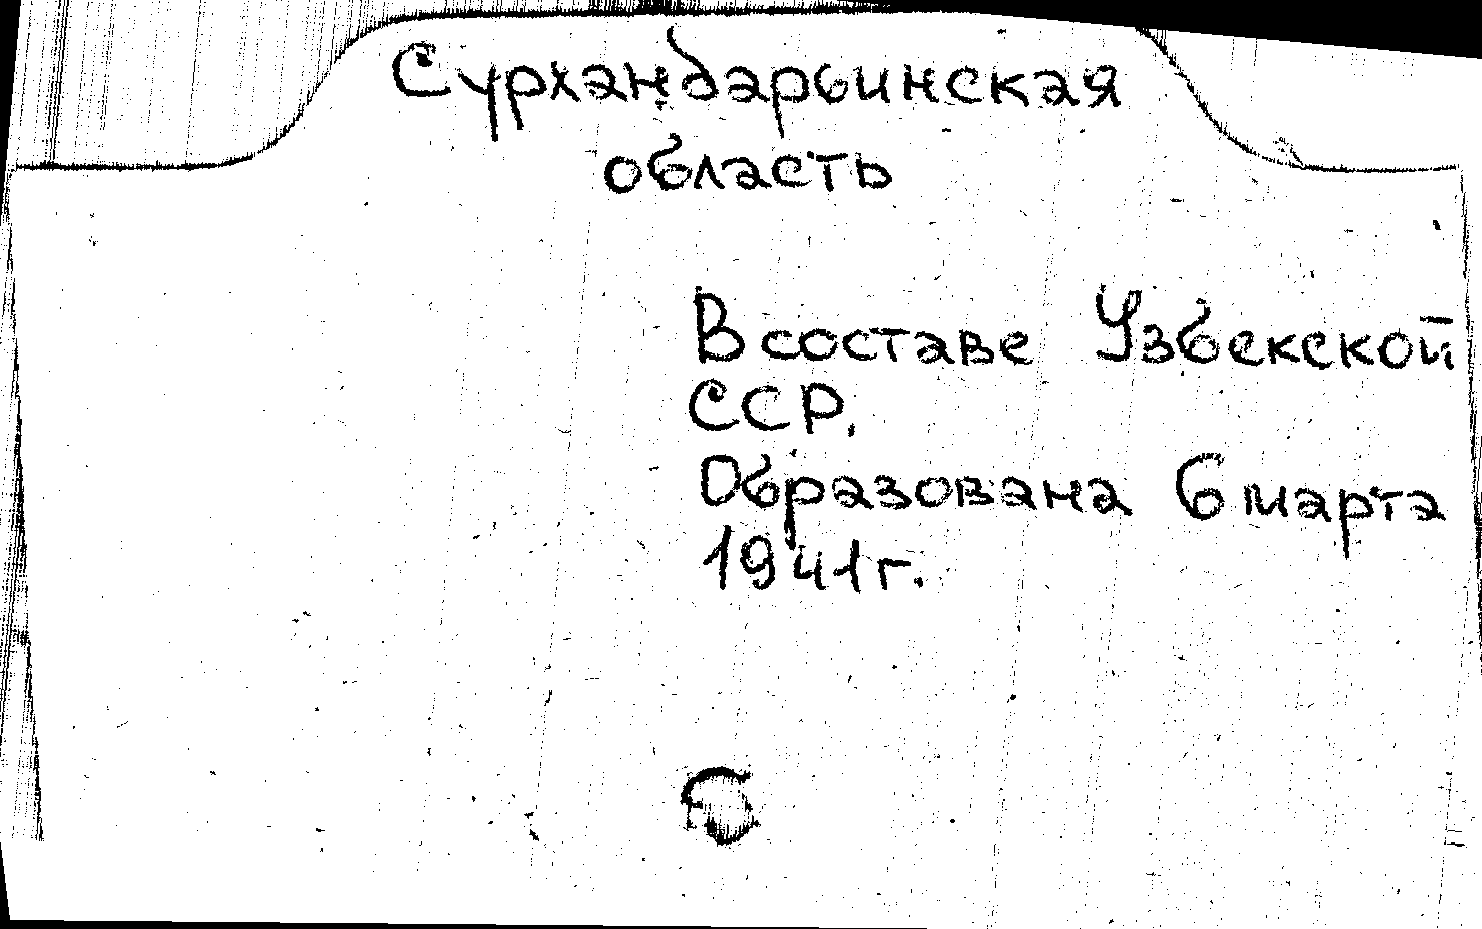 Сурхандарьинская
область
В составе Узбекской
ССР.
Образована 6 марта
1941 г.